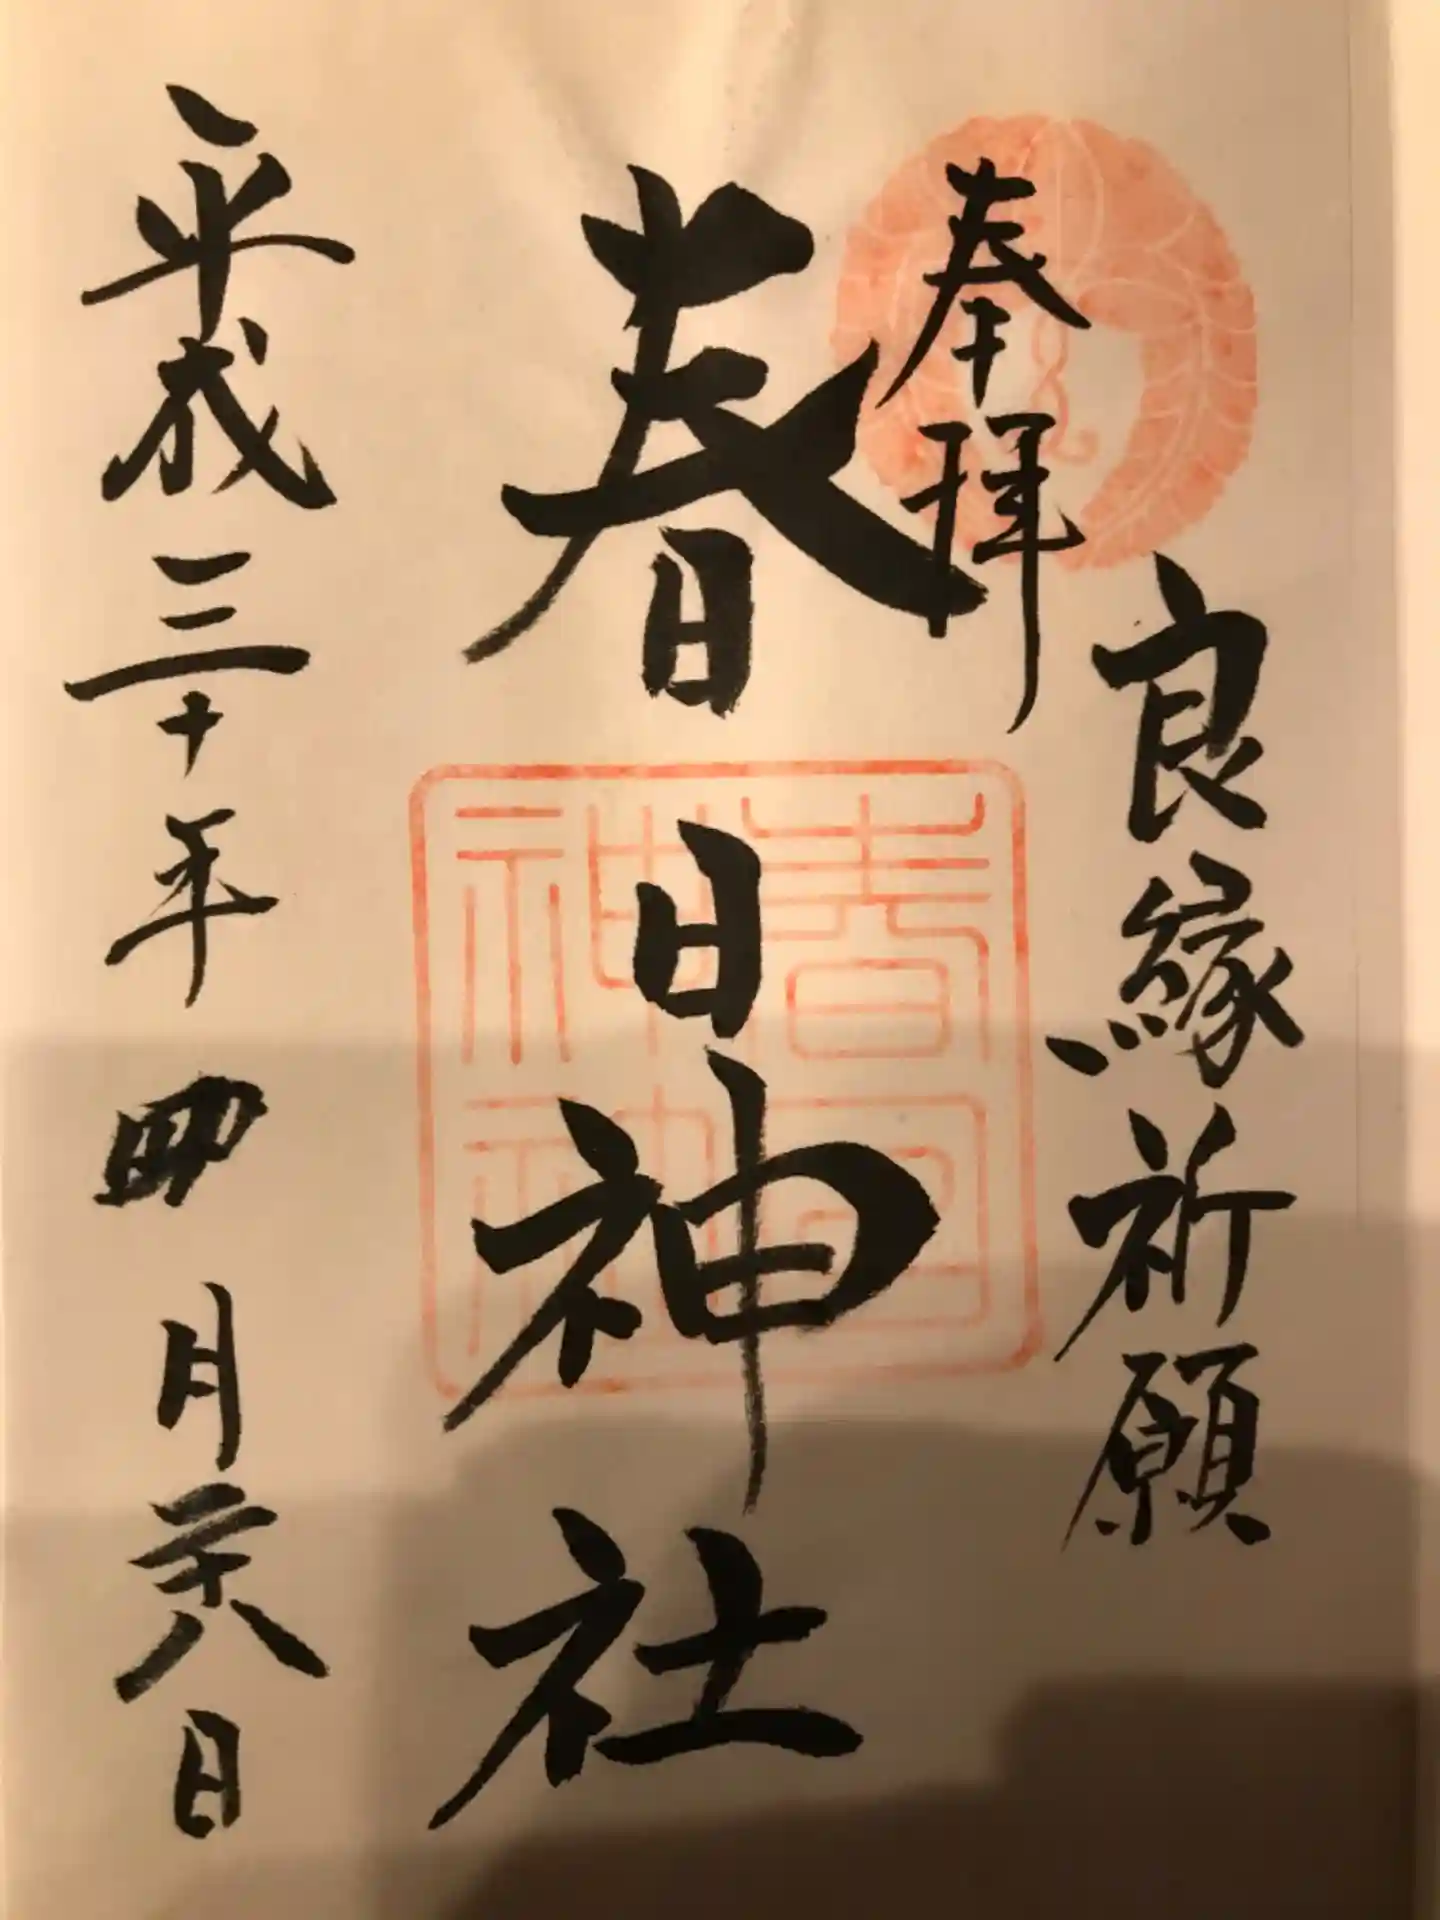 良縁祈願
奉拝
春日神社
平成三十年四月二十八日